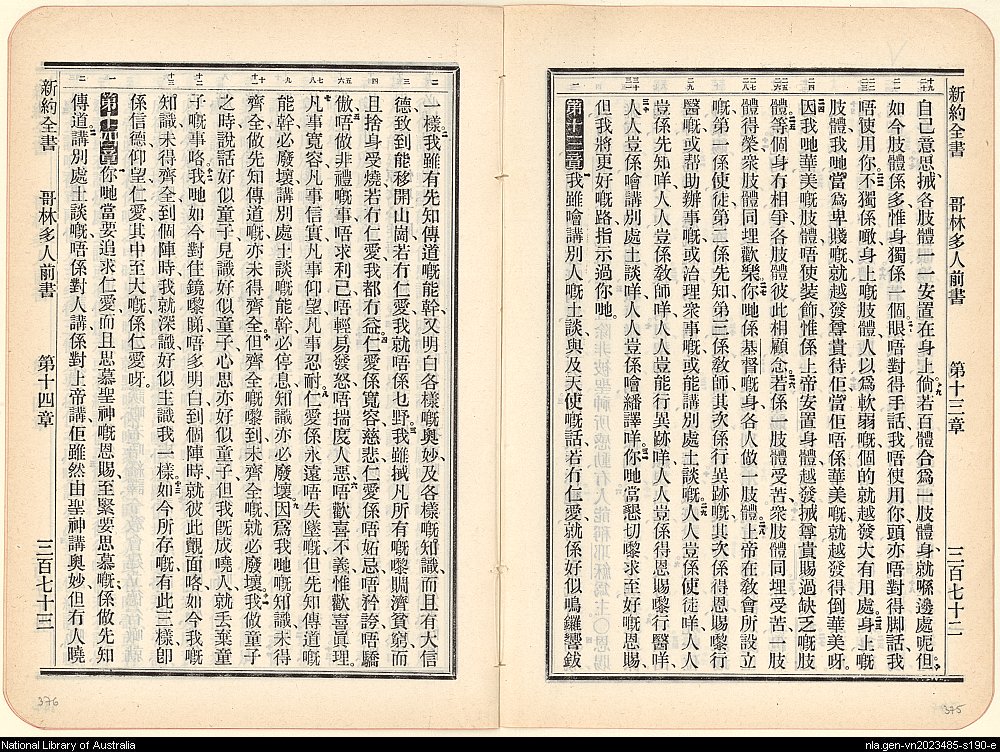 新約全書 哥林多人前書 第十三章 三百七十二
自己意思、搣各肢體一一安置在身上、倘若百體合爲一肢體、身就喺邊處呢、但
如今肢體係多、惟身獨係一個、眼唔對得手話、我唔使用你、頭亦唔對得脚話、我
唔使用你、不獨係噉、身上嘅肢體、人以爲軟弱嘅個的、就越發大有用處、身上嘅
肢體、我哋當爲卑賤嘅、就越發尊貴待佢、當佢唔係華美嘅、就越發得倒華美呀。
因我哋華美嘅肢體、唔使裝飾、惟係上帝安置身體、越發搣尊貴賜過缺乏嘅肢
體、等個身有相爭、各肢體彼此相顧念、若係一肢體受苦、衆肢體同埋受苦、一肢
體得榮、衆肢體同埋歡樂、你哋係基督嘅身、各人做一肢體、上帝在敎會所設立
嘅、第一係使徒、第二係先知、第三係敎師、其次係行異跡嘅、其次係得恩賜嚟行
醫嘅、或帮助辦事嘅、或治理衆事嘅、或能講別處土談嘅、人人豈係使徒咩、人人
豈係先知咩、人人豈係敎師咩、人人豈能行異跡咩、人人豈係得恩賜嚟行醫咩、
人人豈係噲講別處土談咩、人人豈係噲繙譯咩、你哋當懇切嚟求至好嘅恩賜、
但我將更好嘅路指示過你哋。
第十三章 我雖噲講別人嘅土談、與及天使嘅話、若有仁愛、就係好似鳴鑼響鈸
一樣、我雖有先知傳道嘅能幹、又明白各樣嘅奧妙、及各樣嘅知識、而且有大信
德、致到能移開山崗、若有仁愛、我就唔係乜野、我雖搣凡所有嘅嚟賙濟貧窮、而
且捨身受燒、若有仁愛、我都有益、仁愛係寬容慈悲、仁愛係唔妬忌、唔矜誇、唔驕
傲、唔做非禮嘅事、唔求利己、唔輕易發怒、唔揣度人惡、唔歡喜不義、惟歡喜眞理。
凡事寬容、凡事信實、凡事仰望、凡事忍耐、仁愛係永遠唔失墜嘅、但先知傳道嘅
能幹必廢壞、講別處土談嘅能幹必停息、知識亦必廢壞、因爲我哋嘅知識未得
齊全、做先知傳道嘅、亦未得齊全、但齊全嘅嚟到、未齊全嘅就必廢壞、我做童子
之時、說話好似童子、見識好似童子、心思亦好似童子、但我旣成曉人、就丢棄童
子嘅事咯、我哋如今對住鏡嚟睇、唔多明白、到個陣時就彼此覿面咯、如今我嘅
知識未得齊全、到個陣時、我就深識、好似主識我一樣、如今所存嘅有此三樣、卽
係信德、仰望、仁愛、其中至大嘅係仁愛呀。
第十四章 你哋當要追求仁愛、而且思慕聖神嘅恩賜、至緊要思慕嘅、係做先知
傳道、講別處土談嘅、唔係對人講、係對上帝講、佢雖然由聖神講奧妙、但冇人曉
新約全書 哥林多人前書 第十四章 三百七十三
376
375
National Library of Australia
nla.gen-vn2023485-s190-e